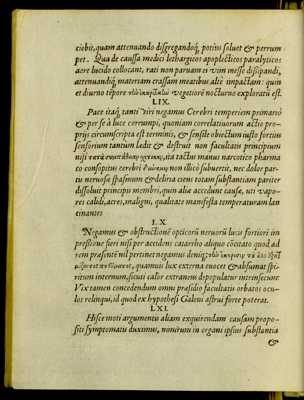 ciebit, quam attenuando disgregandoq́, potius soluet & perrum
pet. Qua de caussa medici lethargicos apoplecticos paralyticos
aere lucido collocant, rati non paruam ei vim messe dissipandi,
attenuandiq́, materiam crassam meatibus altè impactam: quin
et diurno tẽpore vegetiorẽ nocturno exploratũ est.
LIX.
Pace itaq́ tanti viri negamus Cerebri temperiem primariò
& per se à luce corrumpi, quoniam correlatiuorum actio pro-
prijs circumscripta est terminis, & sensile obiectum iusto fortius
sensorium tantum ledit & destruit non facultatis principium
nisi ita tactus manus narcotico pharma
co consopitus cerebri non illicò subuertit, nec dolor par-
tis neruosæ spasmum & deliria ciens totam substantiam pariter
dissoluit principis membri, quin aliæ accedunt causæ, uti vapo-
res calidi, acres, maligni, qualitate manifesta temperaturam lan
cinantes
LX
Negamus & obstructionẽ opticorũ neruorũ lucis fortiori im
pressione fieri nisi per accidens catarrho aliquo cõcitato quod ad
rem præsentẽ nil pertinet negamus deniq́
quamuis lux externa euocet & absumat spi-
ritum internum, sicuti calor extraneus depopulatur intrinsecum
Vix tamen concedendum omni præsidio facultatis orbatos ocu-
los relinqui, id quod ex hypothesi Galeni astrui forte poterat.
LXI.
Hisce moti argumentis aliam exquirendam causam propo-
siti symptomatis duximus, nimirum in organi ipsius substantia
&